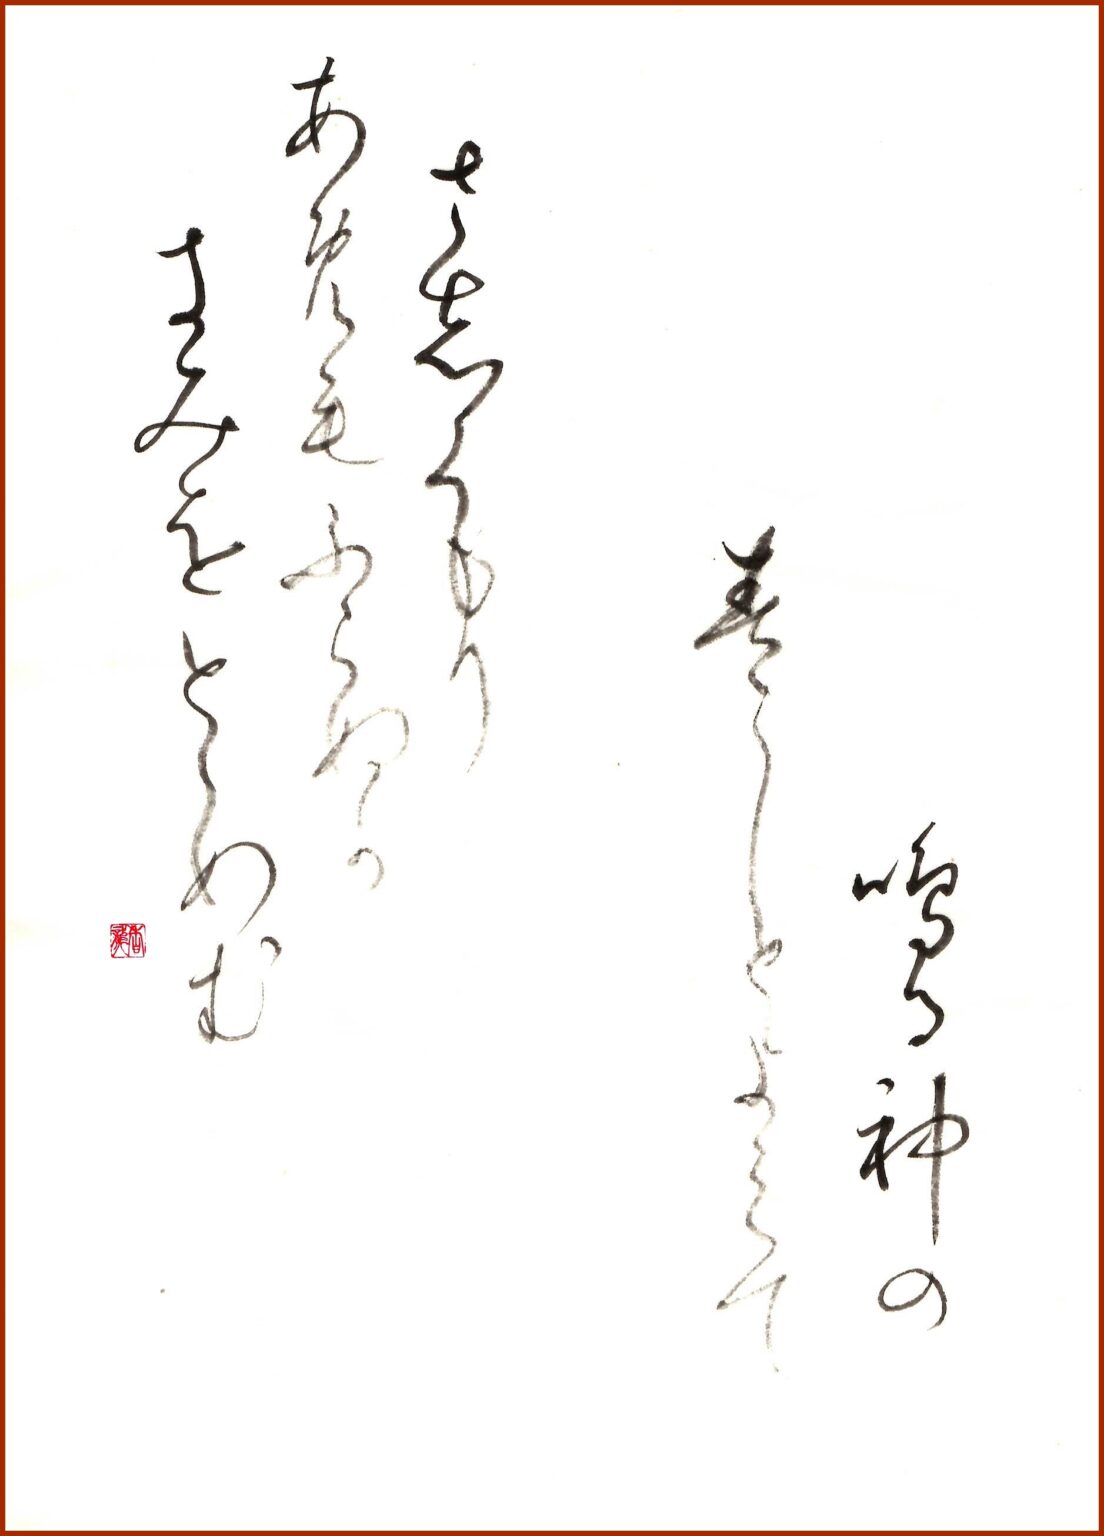 鳴る神の
春こしとよミて
さ志くもり
あ免毛ふらぬか
きみをとゝめむ